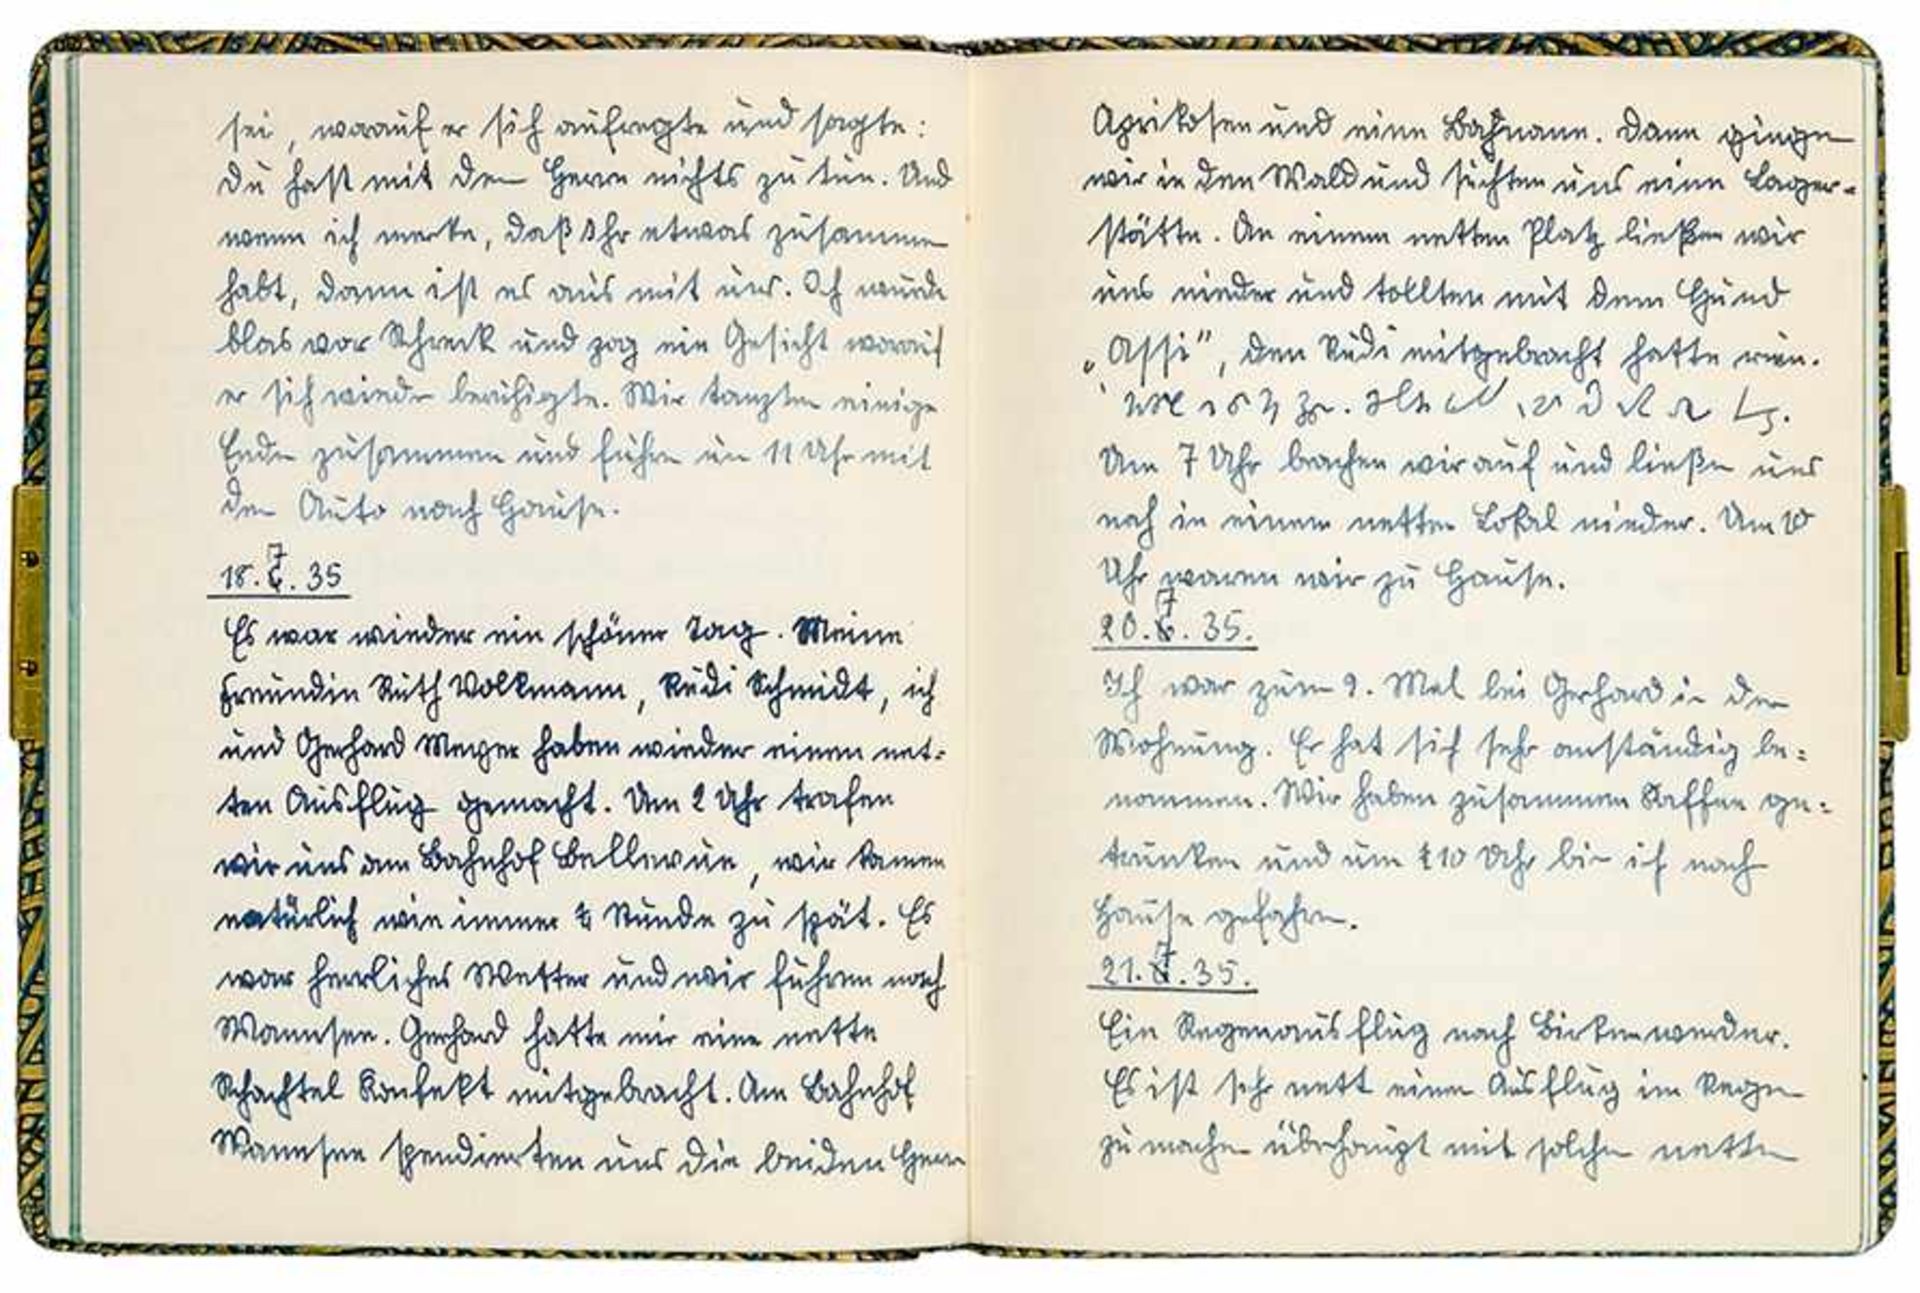 sei, worauf er sich aufregte und sagte:
Du hast mit dem Herrn nichts zu tun. Und
wenn ich merke, daß Ihr etwas zusammen
habt, dann ist es aus mit uns. Ich wurde
blas vor Schreck und zog ein Gesicht worauf
er sich wieder beruhigte. Wir tanzten einige
Ende zusammen und fuhren um 11 Uhr mit
dem Auto nach Hause.
18.7.35
Es war wieder ein schöner Tag. Meine
Freundin Ruth Volkmann, Rudi Schmidt, ich
und Gerhard Meyer haben wieder einen net-
ten Ausflug gemacht. Um 2 Uhr trafen
wir uns am Bahnhof Bellevue, wir kamen
natürlich wie immer ½ Stunde zu spät. Es
war herrliches Wetter und wir fuhren nach
Wannsee. Gerhard hatte mir eine nette
Schachtel Konfekt mitgebracht. Am Bahnhof
Wannsee spendierten uns die beiden Herrn
Aprikosen und eine Banane. Dann gingen
wir in den Wald und suchten uns eine Lager-
stätte. An einem netten Platz ließen wir
uns nieder und tollten mit dem Hund
„Assi", den Rudi mitgebracht hatte rum.
Um 7 Uhr brachen wir auf und ließen uns
noch in einem netten Lokal nieder. Um 10
Uhr waren wir zu Hause.
20.7.35.
Ich war zum 2. Mal bei Gerhard in der
Wohnung. Er hat sich sehr anständig be-
nommen. Wir haben zusammen Kaffee ge-
trunken und um ½10 Uhr bin ich nach
Hause gefahren.
21.7.35.
Ein Regenausflug nach Birkenwerder.
Es ist sehr nett einen Ausflug im Regen
zu machen überhaupt mit solchen netten